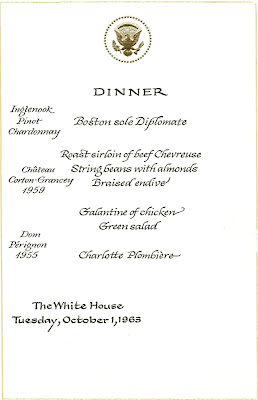 DINNER
Inglenook
Pinot
Chardonnay
Boston sole Diplomate
Roast sirloin of beef Chevreuse
String beans with almonds
Braised endive
Château
Corton-Grancey
1959
Galantine of chicken
Green salad
Dom
Pérignon
1955
Charlotte Plombière
The White House
Tuesday, October 1, 1963